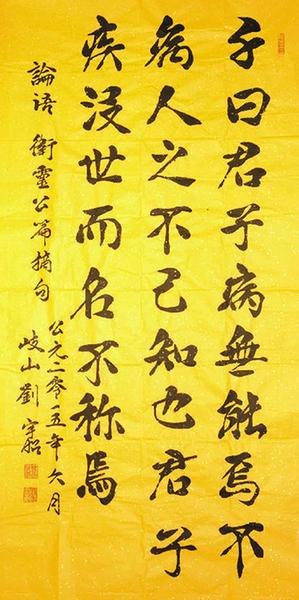 子曰君子病無能焉不
病人之不己知也君子
疾没世而名不称焉
論语 衛靈公篇摘句
公元二零一五年六月
岐山劉宇船